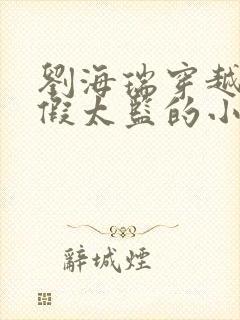 劉海瑞穿越
假太監的小
辭城煙